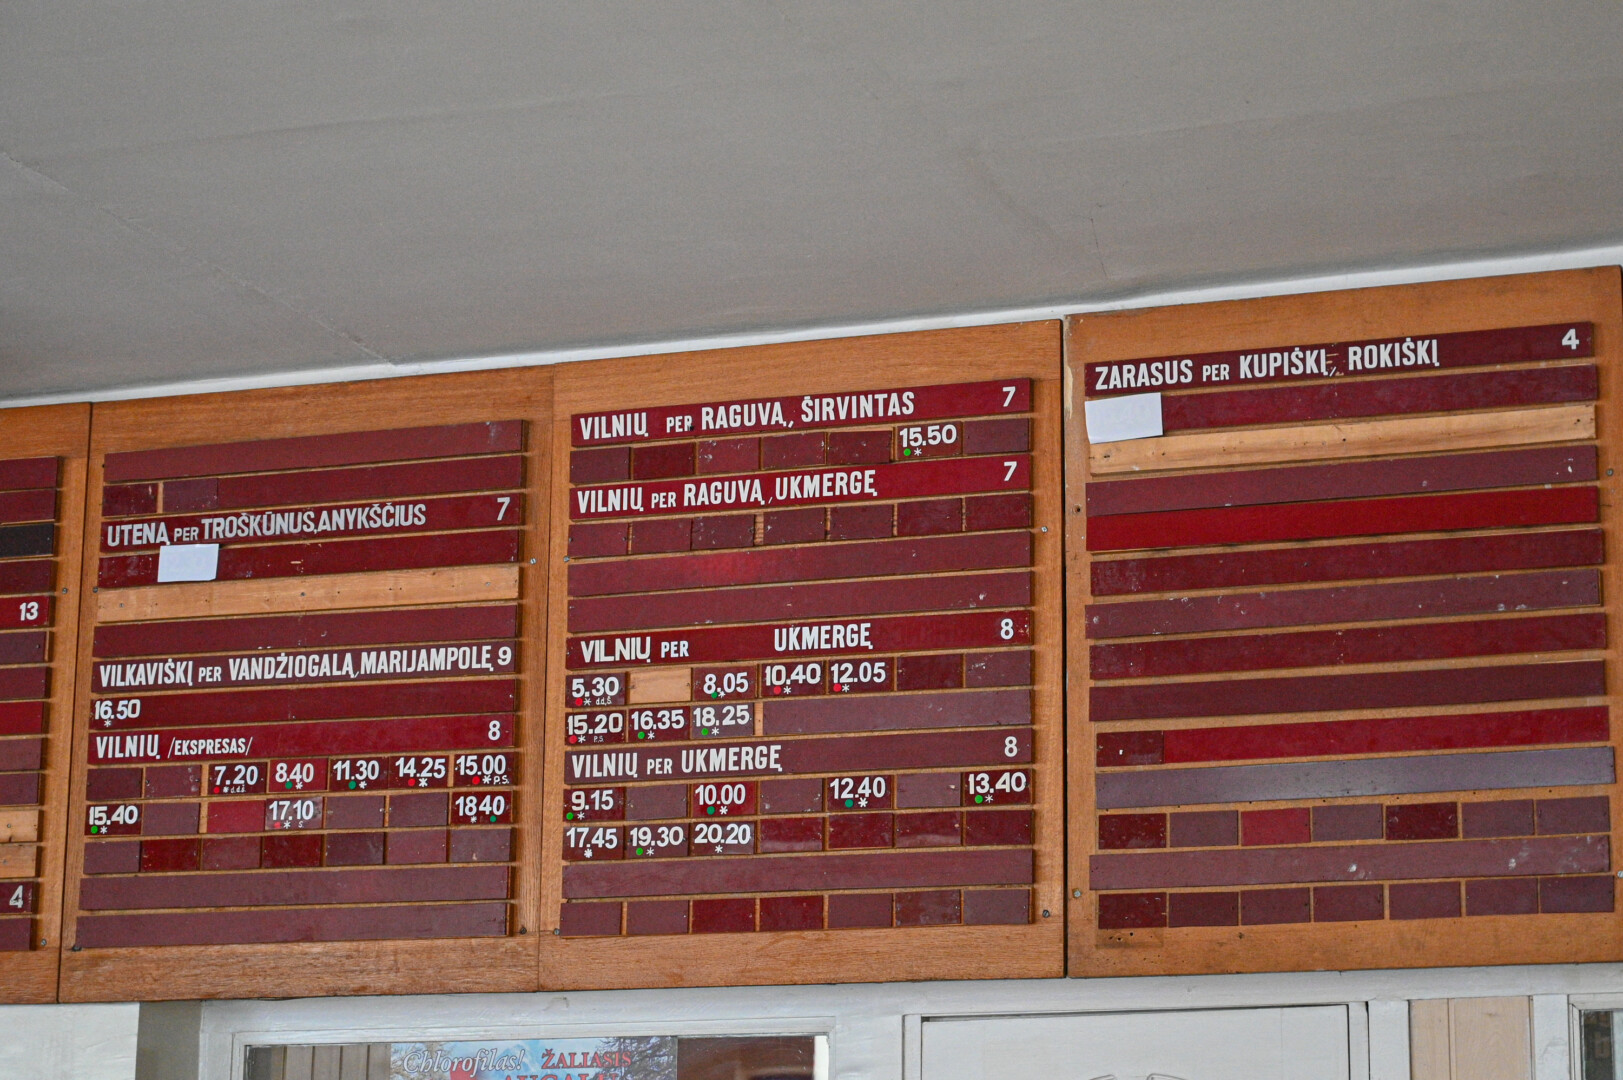 13
4
UTENĄ PER TROŠKŪNUS,ANYKŠČIUS 7
VILKAVIŠKĮ PER VANDŽIOGALĄ,MARIJAMPOLĘ 9
16.50
*
VILNIŲ /EKSPRESAS/ 8
7.20 8.40 11.30 14.25 15.00
* * * * P.S.
15.40 17.10 18.40
* * S. *
VILNIŲ PER RAGUVĄ, ŠIRVINTAS 7
15.50
*
VILNIŲ PER RAGUVĄ,UKMERGĘ 7
VILNIŲ PER UKMERGĘ 8
5.30 8.05 10.40 12.05
* * * *
15.20 16.35 18.25
* P.S. * *
VILNIŲ PER UKMERGĘ 8
9.15 10.00 12.40 13.40
* * * *
17.45 19.30 20.20
* * *
ZARASUS PER KUPIŠKĮ, ROKIŠKĮ 4
Chlorofilas! ŽALIASIS